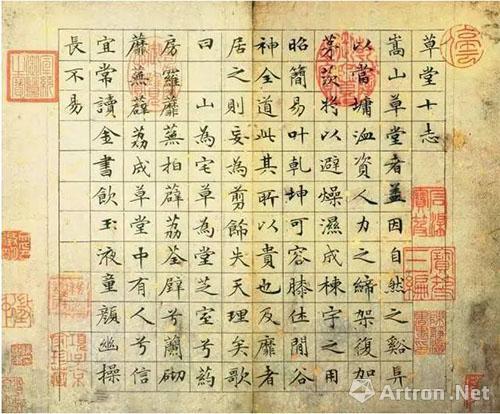 草堂十志
嵩山草堂者蓋因自然之谿阜
以當墉洫資人力之締架復加
茅茨将以避燥濕成棟宇之用
昭簡易叶乾坤可容膝休閒谷
神全道此其所以貴也及靡者
居之則妄為剪飾失天理矣歌
曰 山為宅草為堂芝室兮葯
房羅蘼蕪拍薜荔荃壁兮蘭砌
蘼蕪薜荔成草堂中有人兮信
宜常讀金書飲玉液童顏幽操
長不易
項子京家珍藏
Artron.Net